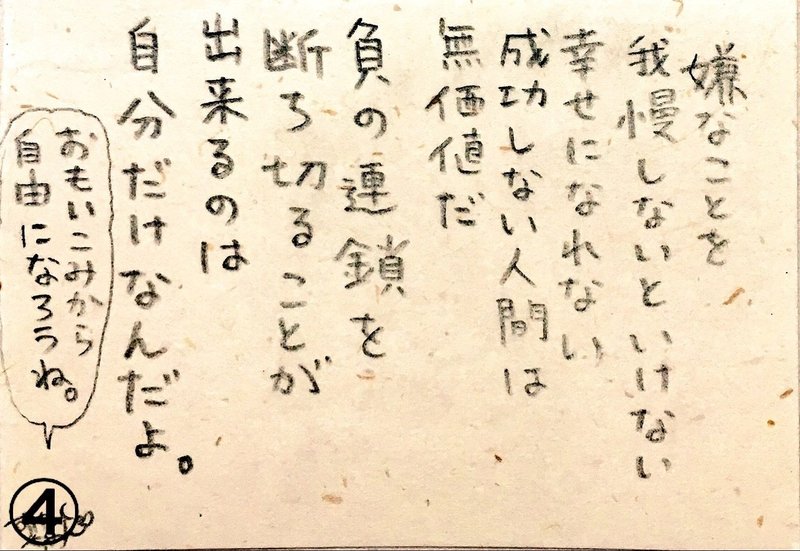 嫌なことを
我慢しないといけない
幸せになれない
成功しない人間は
無価値だ
負の連鎖を
断ち切ることが
出来るのは
自分だけなんだよ。
おもいこみから
自由になろうね。
④